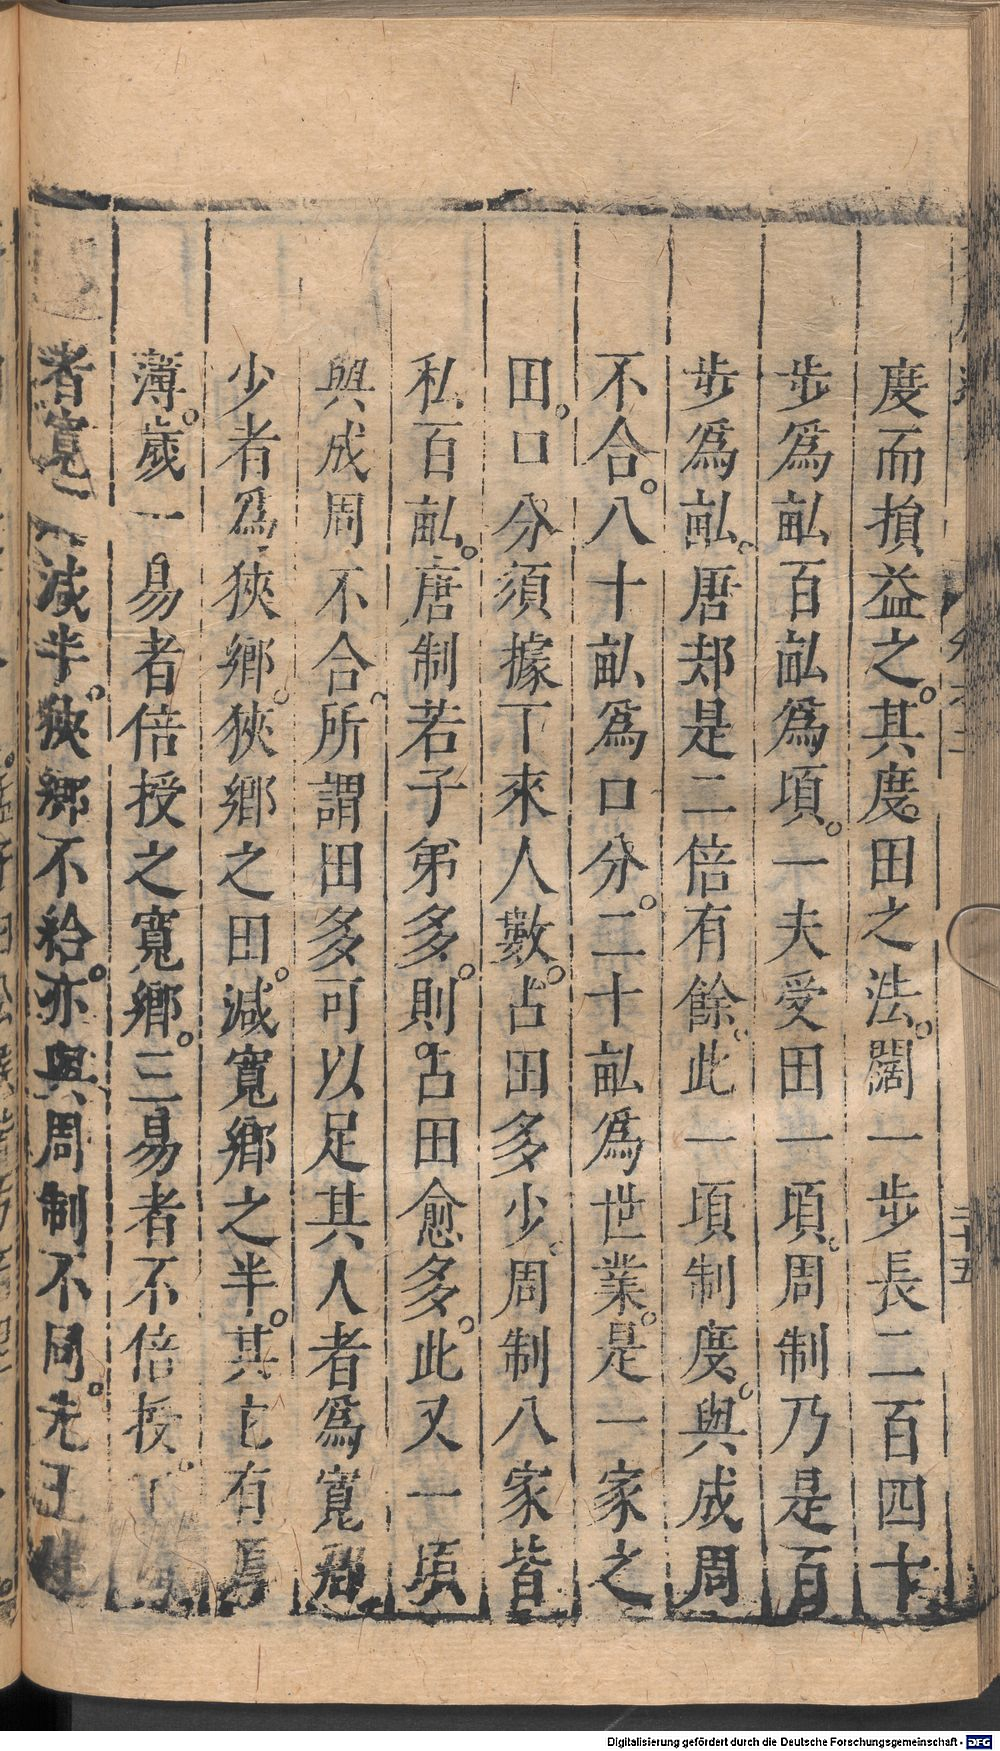 度而損益之其度田之法闊一步長二百四十
步爲畝百畝爲頃一夫受田一頃周制乃是百
步爲畝唐却是二倍有餘此一頃制度與成周
不合八十畝爲口分二十畝爲世業是一家之
田口分須據下來人數占田多少周制八家皆
私百畝唐制若子弟多則占田愈多此又一項
與成周不合所謂田多可以足其人者爲寬鄉
少者爲狹鄉狹鄉之田減寬鄉之半其它有厚
薄歲一易者倍授之寬鄉三易者不倍授工
者寬 減半狹鄉不給亦與周制不同先王
二十五
Digitalisierung gefördert durch die Deutsche Forschungsgemeinschaft - DFG